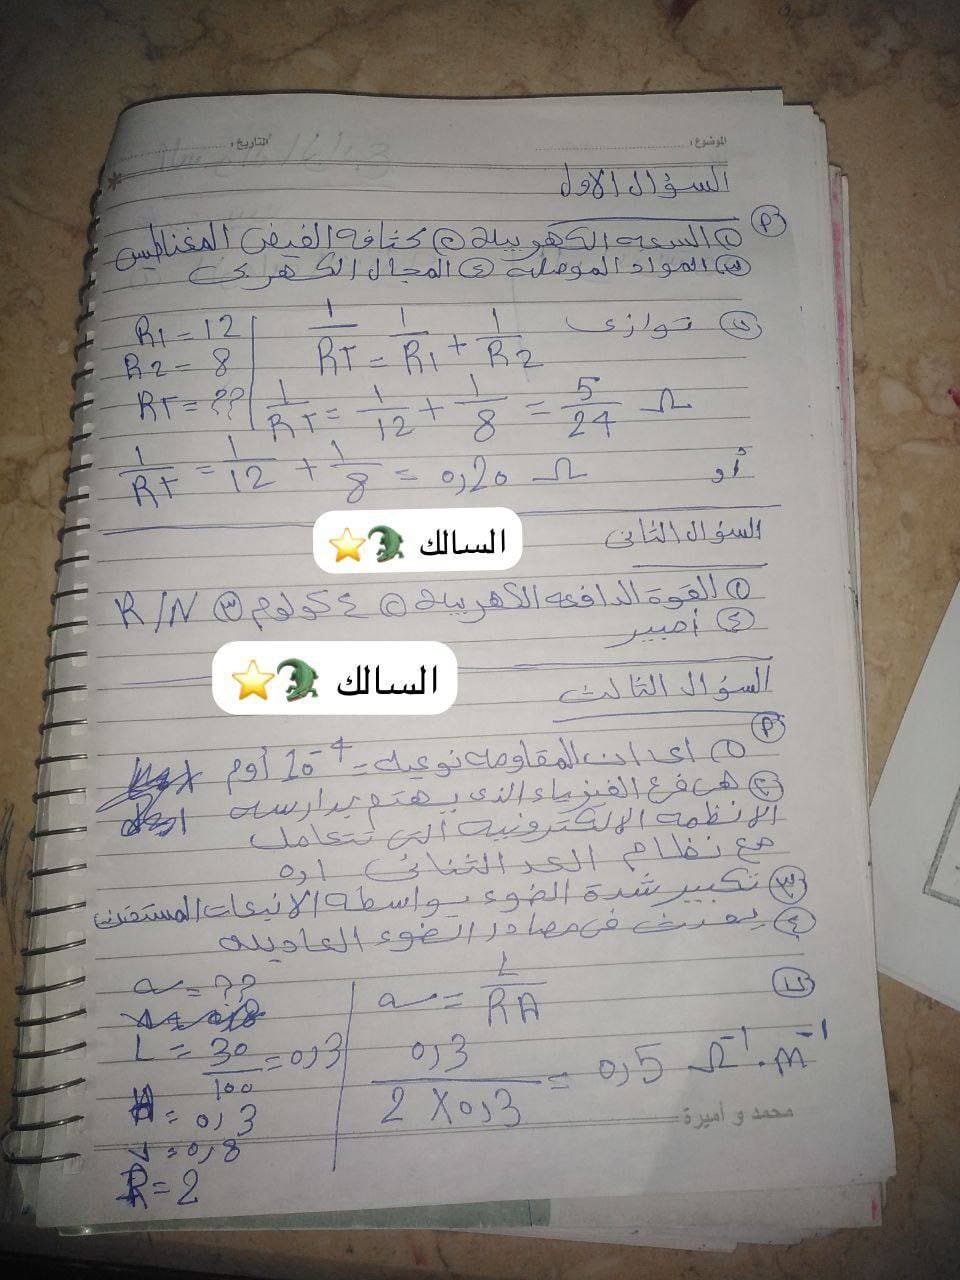 الموضوع: التاريخ:
السؤال الاول
م
١ السعه الكهربيه ٢ كثافه الفيض المغناطيس
٣ المواد الموصله ٤ المجال الكهربى
ب توازى
R1 = 12
R2 = 8
RT = ??
1/RT = 1/R1 + 1/R2
1/RT = 1/12 + 1/8 = 5/24 Ω
أو
1/RT = 1/12 + 1/8 = 0,20 Ω
السؤال الثانى
السالك 🐊⭐
١ القوة الدافعه الكهربيه ٢ ٤ كولوم ٣ R/N
٤ أمبير
السؤال الثالث
السالك 🐊⭐
م
١ اى ان المقاومه نوعيه = 10⁻⁴ أوم
٢ هى فرع الفيزياء الذى يهتم بدارسه
الانظمه الالكترونيه التى تتعامل
مع نظام العد الثنائى ١،٥
٣ تكبير شدة الضوء بواسطه الانبعاث المستحث
٤ يحدث فى مصادر الضوء العاديه
ب
= ??
L = 30/100 = 0,3
A = 0,3
V = 0,8
R = 2
= L/RA
0,3/2 X 0,3 = 0,5 Ω⁻¹.m⁻¹
محمد و أميرة